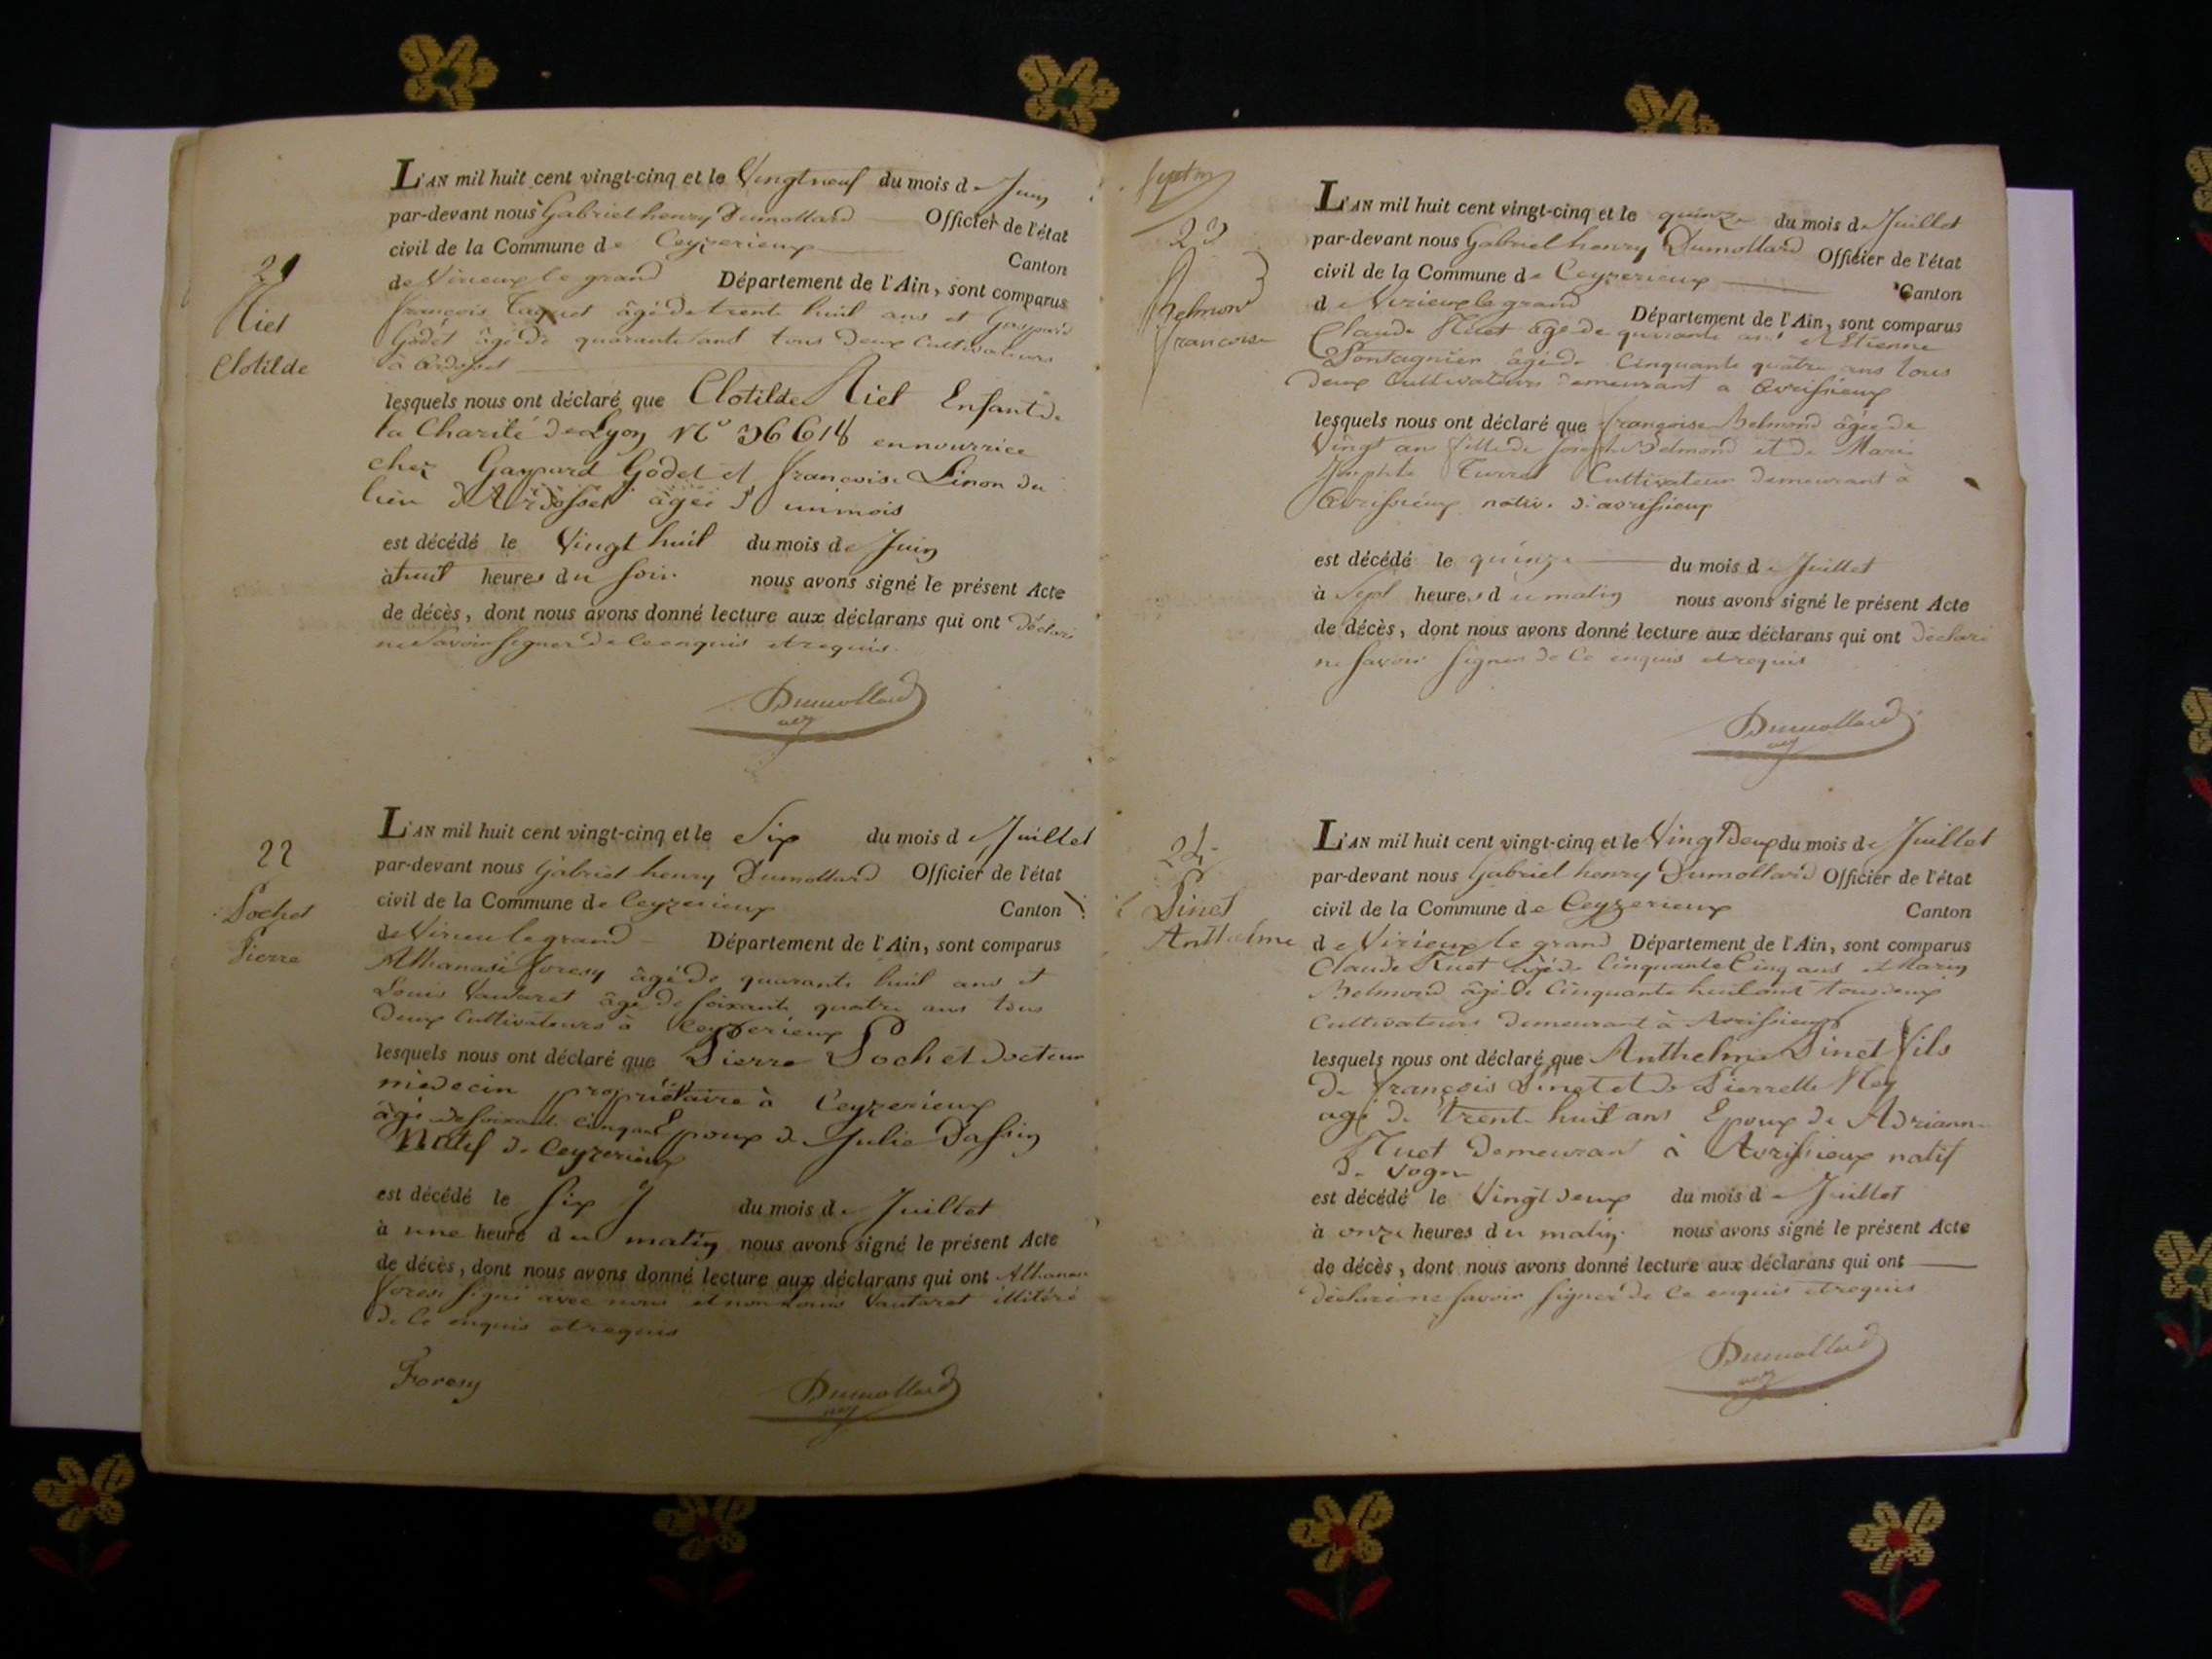 21
Riel
Clotilde
L'AN mil huit cent vingt-cinq et le Vingt neuf du mois de Juin
par-devant nous Gabriel henry Dumollard Officier de l'état
civil de la Commune de Ceyzerieux Canton
de Virieux le grand Département de l'Ain, sont comparus
françois âgé de trente huit ans et Gaspard
Godet âgé de quarante ans tous deux Cultivateurs
à Ardosset
lesquels nous ont déclaré que Clotilde Riel Enfant de
la Charité de Lyon N° 36618 en nourrice
chez Gaspard Godet et francoise Pinon du
lieu d'Ardosset âgée d'un mois
est décédé le Vingt huit du mois de Juin
à huit heures du soir nous avons signé le présent Acte
de décès, dont nous avons donné lecture aux déclarans qui ont déclaré
ne Savoir signer de ce enquis et requis.
Dumollard
22
Pochet
Pierre
L'AN mil huit cent vingt-cinq et le Six du mois de Juillet
par-devant nous Gabriel henry Dumollard Officier de l'état
civil de la Commune de Ceyzerieux Canton
de Virieu le grand Département de l'Ain, sont comparus
Athanase foresy âgé de quarante huit ans et
Louis Vautaret âgé de soixante quatre ans tous
deux Cultivateurs à Ceyzerieux
lesquels nous ont déclaré que Pierre Pochet docteur
médecin propriétaire à Ceyzerieux
âgé de soixante cinq ans Epoux de Julie Dassin
Natif de Ceyzerieux
est décédé le six du mois de Juillet
à une heure du matin nous avons signé le présent Acte
de décès, dont nous avons donné lecture aux déclarans qui ont Athanase
foresi signé avec nous et non Louis Vautaret illitéré
de ce enquis et requis
Foresy
Dumollard
23
Belmond
francoise
L'AN mil huit cent vingt-cinq et le quinze du mois de Juillet
par-devant nous Gabriel henry Dumollard Officier de l'état
civil de la Commune de Ceyzerieux Canton
de Virieux le grand Département de l'Ain, sont comparus
Claude Ruet âgé de quarante ans et Etienne
Pontagnier âgé de Cinquante quatre ans tous
deux Cultivateurs demeurant a Avrissieux
lesquels nous ont déclaré que françoise Belmond âgée de
Vingt ans fille de Joseph Belmond et de Marie
Turrel Cultivateur demeurant à
Avrissieux native d'avrissieux
est décédé le quinze du mois de Juillet
à Sept heures du matin nous avons signé le présent Acte
de décès, dont nous avons donné lecture aux déclarans qui ont déclaré
ne Savoir Signer de Ce enquis et requis
Dumollard
24
Pinet
Anthelme
L'AN mil huit cent vingt-cinq et le Vingt deux du mois de Juillet
par-devant nous Gabriel henry Dumollard Officier de l'état
civil de la Commune de Ceyzerieux Canton
de Virieux le grand Département de l'Ain, sont comparus
Claude Ruet âgé de Cinquante Cinq ans et Marin
Belmond âgé de Cinquante huit ans tous deux
Cultivateurs demeurant à Avrissieux
lesquels nous ont déclaré que Anthelme Pinet fils
de françois Pinet et de Pierrette Rey
agé de trente huit ans Epoux de Adrianne
Ruet Demeurant à Avrissieux natif
de Vogn
est décédé le Vingt deux du mois de Juillet
à onze heures du matin. nous avons signé le présent Acte
de décès, dont nous avons donné lecture aux déclarans qui ont
déclaré ne Savoir Signer de Ce enquis et requis
Dumollard